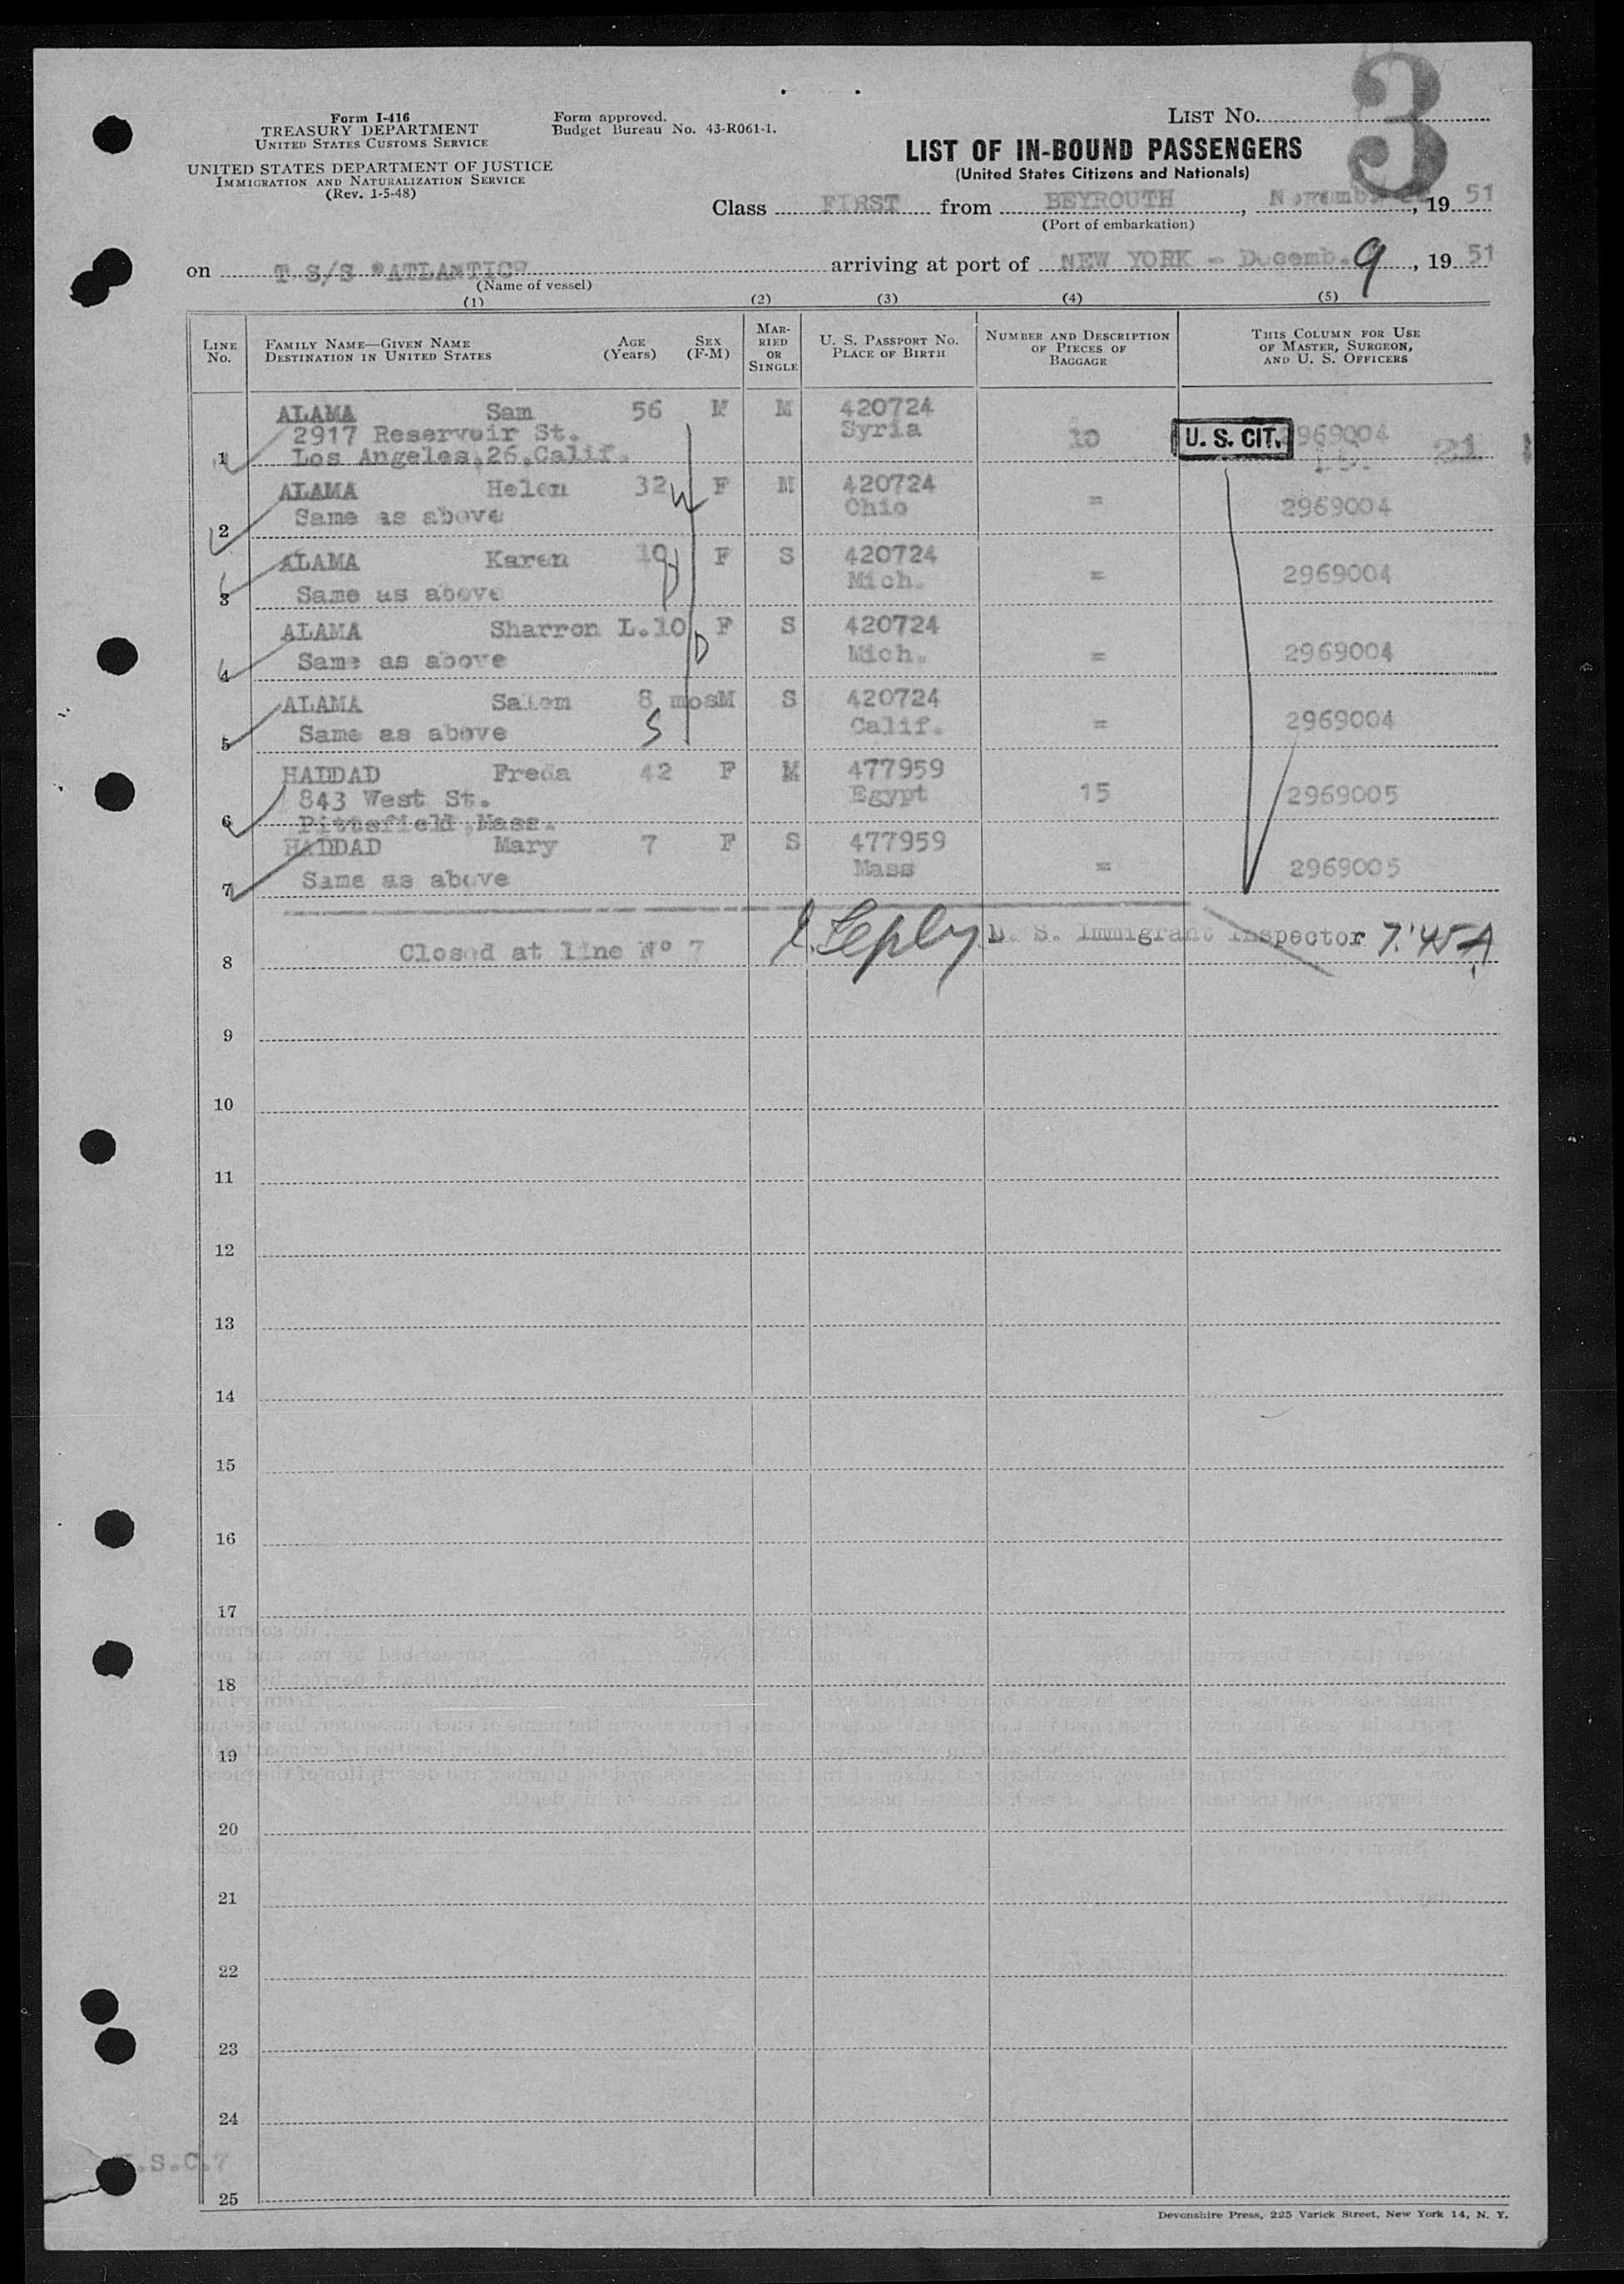 3
Form I-416
TREASURY DEPARTMENT
UNITED STATES CUSTOMS SERVICE
UNITED STATES DEPARTMENT OF JUSTICE
IMMIGRATION AND NATURALIZATION SERVICE
(Rev. 1-5-48)
Form approved.
Budget Bureau No. 43-R061-1.
LIST NO.
LIST OF IN-BOUND PASSENGERS
(United States Citizens and Nationals)
Class FIRST from BEYROUTH, 19 51
(Port of embarkation)
on T S/S "ATLANTIC" arriving at port of NEW YORK - Decemb. 9, 19 51
(Name of vessel)
(1) (2) (3) (4) (5)
LINE NO. FAMILY NAME—GIVEN NAME DESTINATION IN UNITED STATES AGE (Years) SEX (F-M) MARRIED OR SINGLE U. S. PASSPORT NO. PLACE OF BIRTH NUMBER AND DESCRIPTION OF PIECES OF BAGGAGE THIS COLUMN FOR USE OF MASTER, SURGEON, AND U. S. OFFICERS
ALAMA Sam 56 M M 420724
2917 Reservoir St. Syria 10 U. S. CIT. 969004 21
1 Los Angeles,26,Calif.
ALAMA Helen 32 W F M 420724
2 Same as above Ohio = 2969004
ALAMA Karen 10 D F S 420724
3 Same as above Mich. = 2969004
ALAMA Sharron L. 10 D F S 420724
4 Same as above Mich. = 2969004
ALAMA Salem 8 mos M S 420724
5 Same as above S Calif. = 2969004
HADDAD Freda 42 F M 477959
843 West St. Egypt 15 2969005
6 Pittsfield,Mass.
HADDAD Mary 7 F S 477959
7 Same as above Mass = 2969005
8 Closed at line Nº 7 U. S. Immigrant Inspector 7:45 A
9
10
11
12
13
14
15
16
17
18
19
20
21
22
23
24
.S.C.7
25
Devonshire Press, 225 Varick Street, New York 14, N. Y.